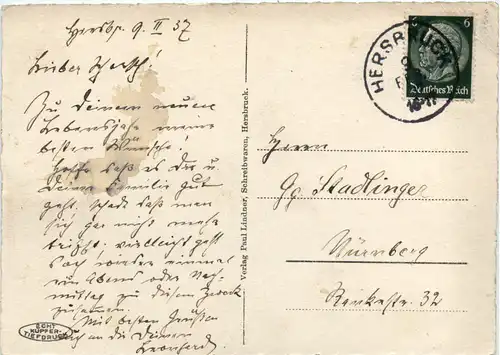 Hersbr. 9. II 37
Lieber Schorsch!
Zu Deinem neuen
Lebensjahr meine
besten Wünsche!
Hoffe daß es Dir u.
Deiner Familie gut
geht. Schade daß man
sich gar nicht mehr
trifft. Vielleicht geht
doch wieder einmal
ein Abend oder Nach-
mittag zu diesem Zweck
zusammen.
Mit besten Grüßen
auch an die Deinen
Leonhard
ECHT
KUPFER-
TIEFDRUCK
Verlag Paul Lindner, Schreibwaren, Hersbruck.
HERSBRUCK
6
Deutsches Reich
Herrn
Gg. Stadlinger
Nürnberg
32